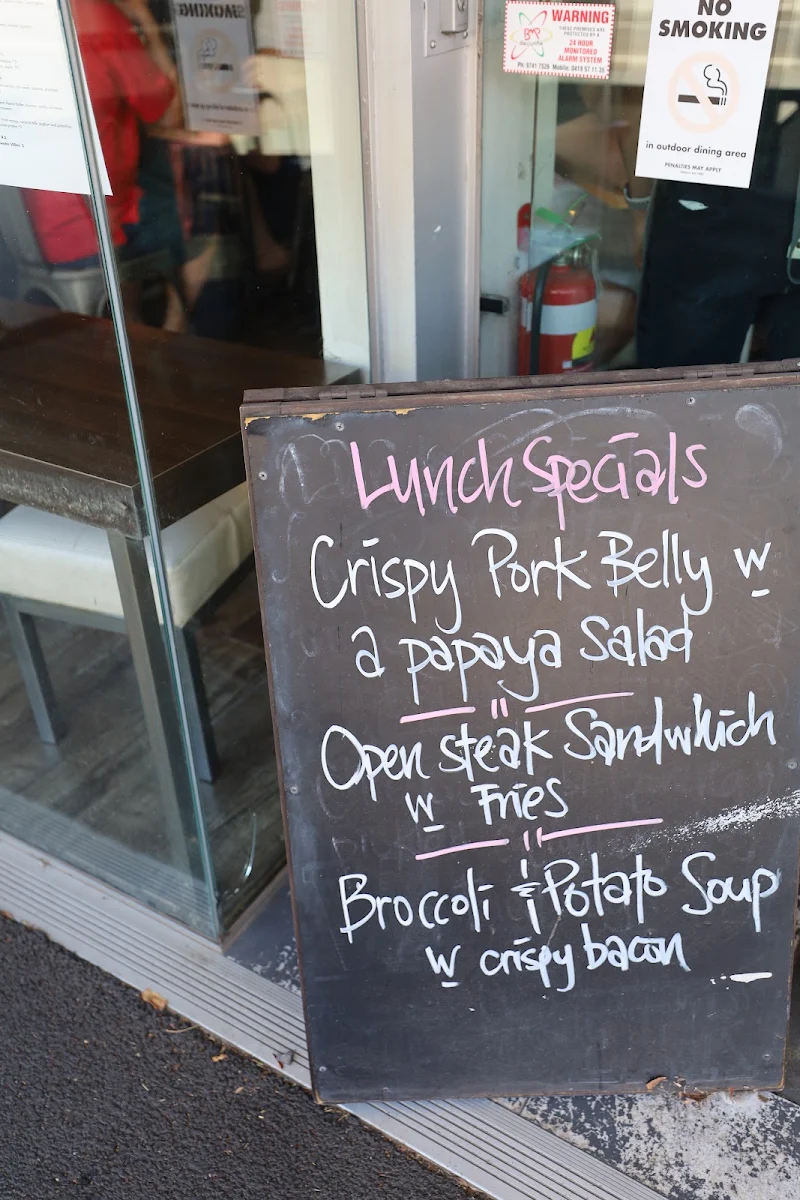 WARNING
THESE PREMISES ARE
PROTECTED BY A
24 HOUR
MONITORED
ALARM SYSTEM
NO
SMOKING
in outdoor dining area
PENALTIES MAY APPLY
Lunch Specials
Crispy Pork Belly w
a papaya Salad
"
Open steak Sandwhich
w Fries
"
Broccoli & Potato Soup
w crispy bacon